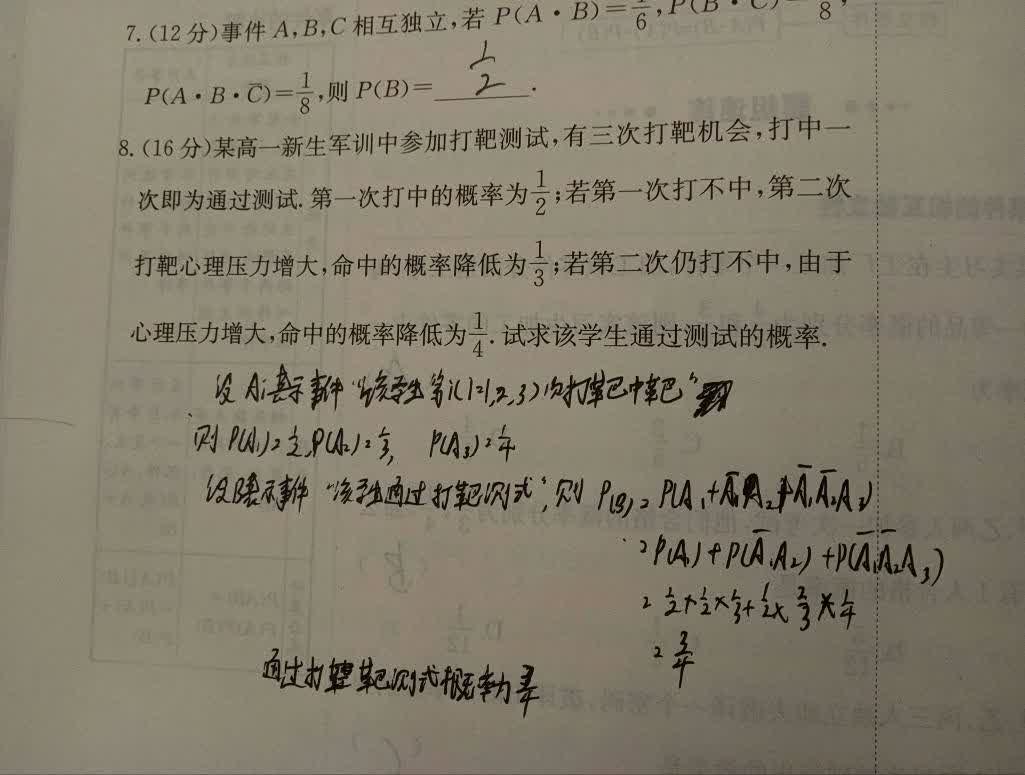 7.(12分)事件A,B,C相互独立,若P(A·B)=1/6,P(B·C)=1/8,
P(A·B·C̄)=1/8,则P(B)=1/2.
8.(16分)某高一新生军训中参加打靶测试,有三次打靶机会,打中一
次即为通过测试.第一次打中的概率为1/2;若第一次打不中,第二次
打靶心理压力增大,命中的概率降低为1/3;若第二次仍打不中,由于
心理压力增大,命中的概率降低为1/4.试求该学生通过测试的概率.
设Ai表示事件“该学生第i(i=1,2,3)次打靶中靶”
则P(A₁)=1/2,P(A₂)=1/3, P(A₃)=1/4
设B表示事件“该学生通过打靶测试”,则P(B)=P(A₁+Ā₁A₂+Ā₁Ā₂A₃)
=P(A₁)+P(Ā₁A₂)+P(Ā₁Ā₂A₃)
=1/2+1/2×1/3+1/2×2/3×1/4
=3/4
通过打靶测试概率为3/4